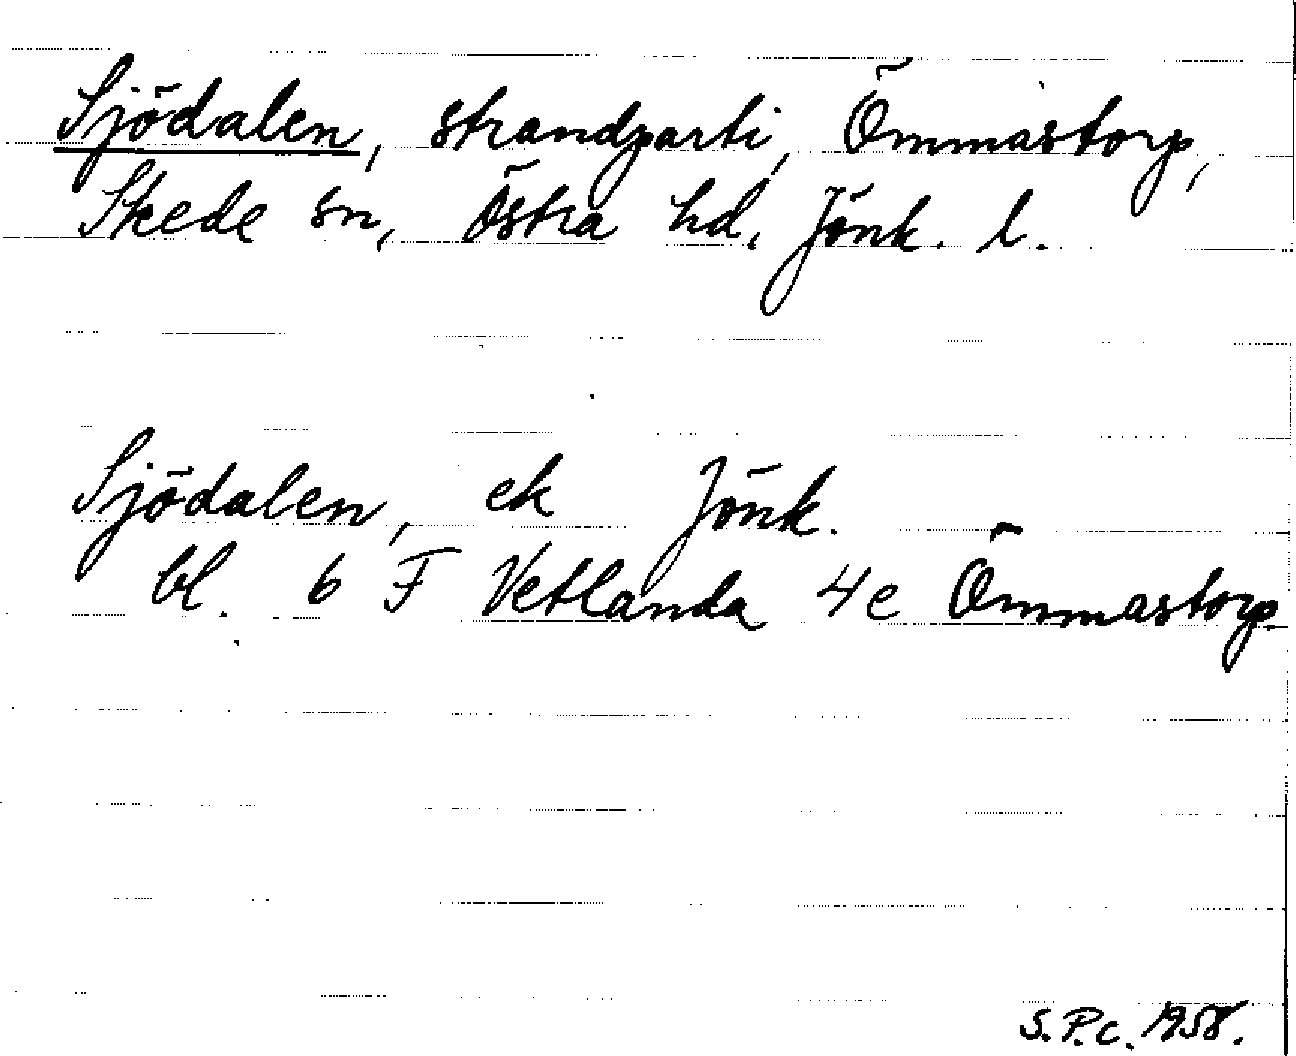 Sjödalen, strandparti, Ömmastorp,
Skede sn, Östra hd, Jönk. l.
Sjödalen, ek Jönk.
bl. 6 F Vetlanda 4e Ömmastorp
S.P.C. 1958.